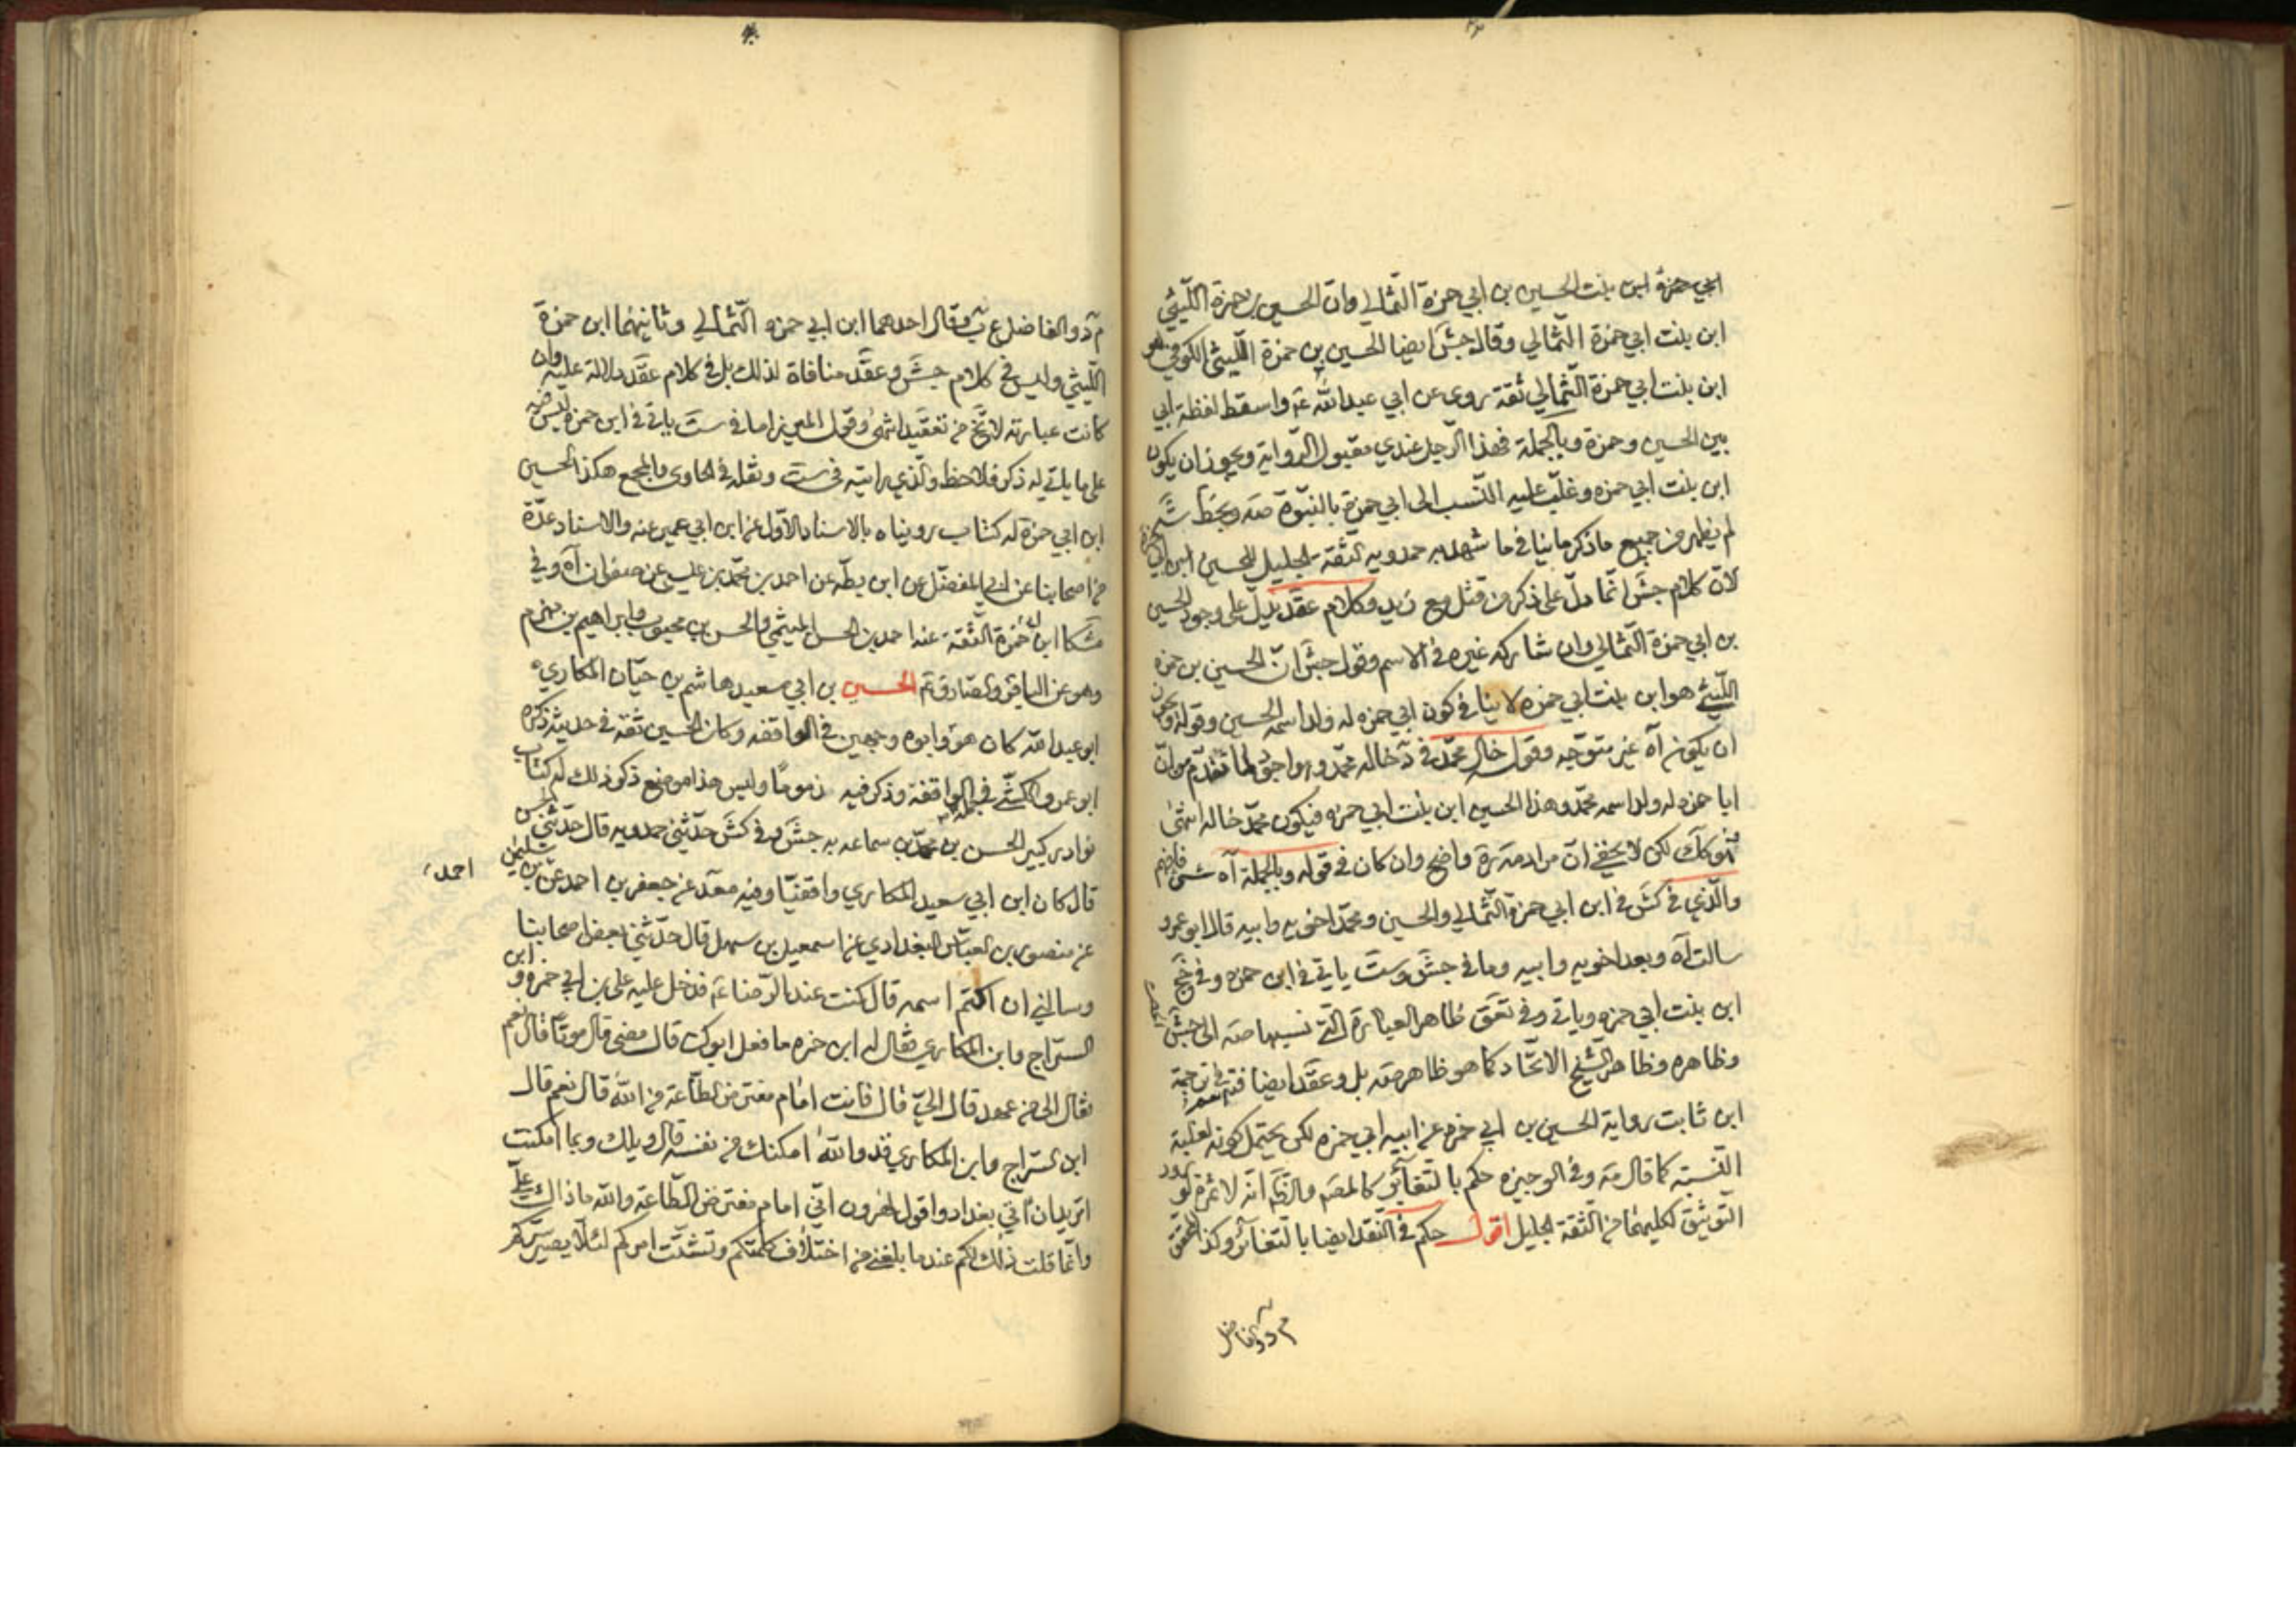 ابي حمزة ابن بنت الحسين بن ابي حمزة الثمالي وان الحسين بن حمزة الليثي
ابن بنت ابي حمزة الثمالي وقال جش ايضا الحسين بن حمزة الليثي الكوفي هو
ابن بنت ابي حمزة الثمالي ثقة روى عن ابي عبد الله ع واسقط لفظة ابي
بين الحسين وحمزة وبالجملة فهذا الرجل عندي مقبول الرواية ويجوز ان يكون
ابن بنت ابي حمزه وغلب عليه النسب الى ابي حمزة بالبنوة صه وبخط شه
لم يظهر من جميع ما ذكر ما ينافي ما شهد به حمدويه لثقة الجليل للحسين ابن ابي حمزة
لان كلام جش انما دل على ذكر من قتل مع زيد وكلام عقد يدل على وجود الحسين
بن ابي حمزة الثمالي وان شاركه غيره في الاسم وقول جش ان الحسين بن حمزه
الليثي هو ابن بنت ابي حمزه لا ينافي كون ابي حمزه له ولد اسمه الحسين وقوله ويجوز
ان يكون آه غير متوجه وقول خال محمد في د خاله محمد وهو اجود لما تقدم من ان
ابا حمزه له ولد اسمه محمد وهذا الحسين ابن بنت ابي حمزه فيكون محمد خاله انتهى
لكن لا يخفى ان مراد صه واضح وان كان في قوله وبالجملة آه شئ فافهم
والذي في كش في ابن ابي حمزة الثمالي والحسين ومحمد اخويه وابيه قال ابو عمرو
سالت آه وبعد اخويه وابيه وما في جش وست ياتي في ابن حمزه وفي جخ
ابن بنت ابي حمزه وياتي وفي تعق ظاهر العبارة التي نسبها صه الى جش
وظاهره وظاهر الشيخ الاتحاد كما هو ظاهر صه بل وعقد ايضا في ترجمة
ابن ثابت رواية الحسين بن ابي حمزه عن ابيه ابي حمزه لكن يحتمل كونه لغلبة
النسبة كما قال صه وفي الوجيزه حكم بالتغاير كالمصه والظ انه لا ثمرة
التوثيق لكليهما من الثقة الجليل اقول حكم في النقد ايضا بالتغاير وكذا المحقق
م د والفاضل
م د والفاضل ع ب وقال احدهما ابن ابي حمزه الثمالي وثانيهما ابن حمزة
الليثي وليس في كلام جش وعقد منافاة لذلك بل في كلام عقد دلالة عليه وان
كانت عبارته لا تخ من تعقيد انتهى وقول الميرزا ما في ست ياتي في ابن حمزه ليس فيه
على ما ياتي له ذكر فلاحظ والذي رايته في ست ونقله في الحاوي والمجمع هكذا الحسين
ابن ابي حمزة له كتاب رويناه بالاسناد الاول عن ابن ابي عمير عنه والاسناد عدة
من اصحابنا عن ابي المفضل عن ابن بطه عن احمد بن محمد بن عيسى عن صفوان آه وفي
مشكا ابن ابي حمزة الثقة عنه احمد بن الحسن الميثمي والحسن بن محبوب وابراهيم بن مهزم
وهو عن الباقر والصادق ع الحسين بن ابي سعيد هاشم بن حيان المكاري
ابو عبد الله كان هو وابوه وجهين في الواقفه وكان الحسين ثقة في حديثه ذكره
ابو عمرو الكشي في جملة الواقفة وذكر فيه ذموما وليس هذا موضع ذكر ذلك له كتاب
نوادر كبير الحسن بن محمد بن سماعه به جش وفي كش حدثني حمدويه قال حدثني الحسن
قال كان ابن ابي سعيد المكاري واقفيا وفيه معد عن جعفر بن احمد عن احمد بن سليمن
عن منصور بن العباس البغدادي عن اسمعيل بن سهل قال حدثني بعض اصحابنا
وسالني ان اكتم اسمه قال كنت عند الرضا ع فدخل عليه علي بن ابي حمزه وابن
السراج وابن المكاري فقال له ابن حمزه ما فعل ابوك قال مضى قال موتا قال نعم
فقال الى من عهد قال الي قال فانت امام مفترض الطاعة من الله قال نعم قال
ابن السراج وابن المكاري قد والله امكنك من نفسه قال ويلك وبما امكنت
اتريد ان آتي بغداد واقول لهرون اني امام مفترض الطاعة والله ما ذاك علي
وانما قلت ذلك لكم عندما بلغني من اختلاف كلمتكم وتشتت امركم لئلا يصير سركم
احمد